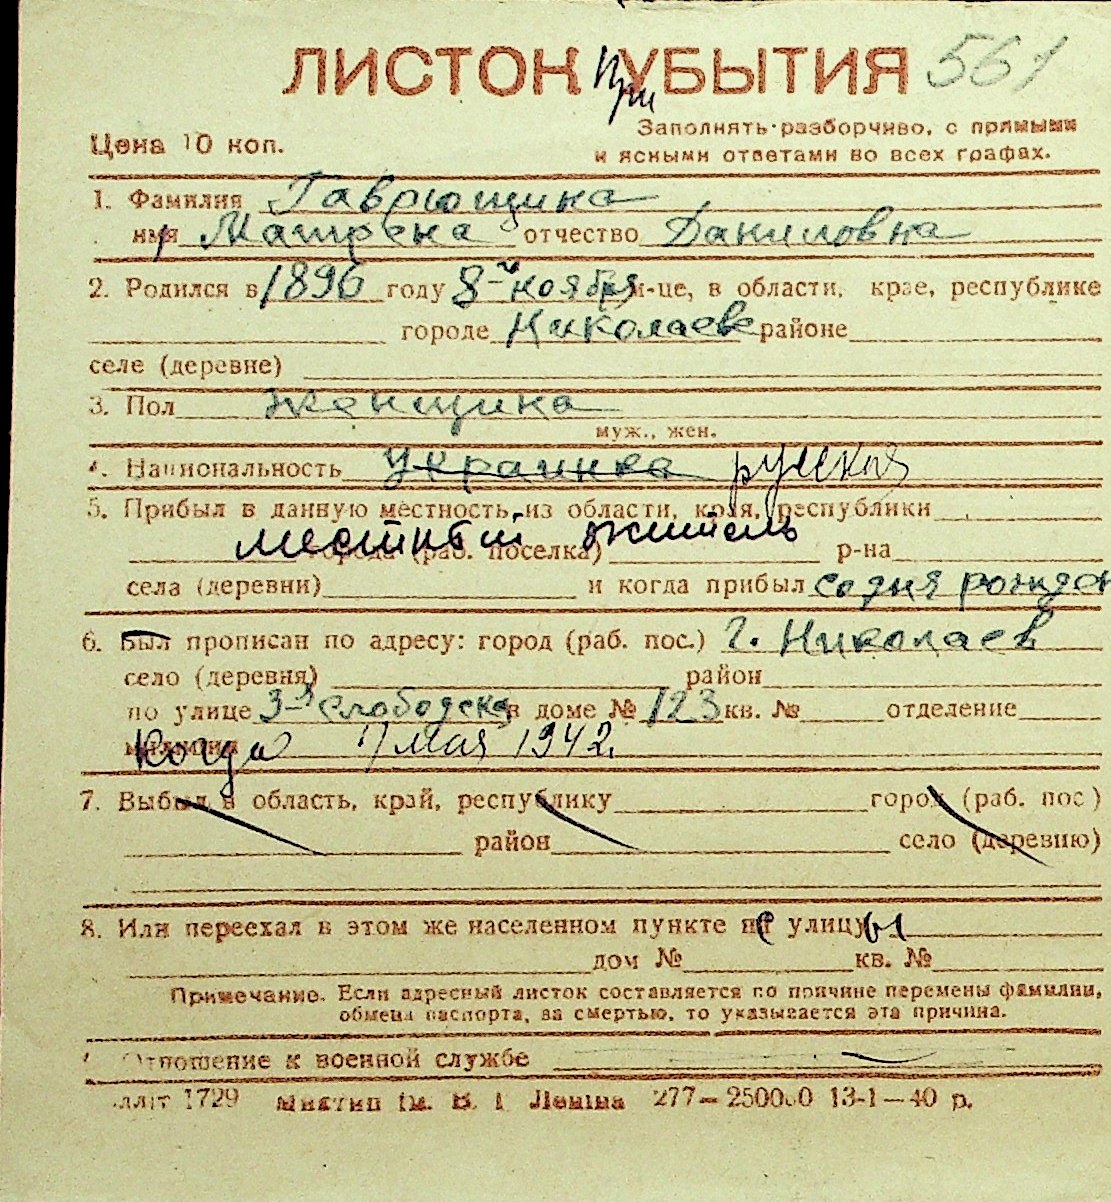 ЛИСТОК При УБЫТИЯ 561
Цена 10 коп.
Заполнять разборчиво, с прямыми
и ясными ответами во всех графах.
1. Фамилия Гаврющина
имя Матрена отчество Даниловна
2. Родился в 1896 году 8-го ноября м-це, в области, крае, республике
городе Николаеве районе
селе (деревне)
3. Пол женщина
муж., жен.
4. Национальность украинка русская
5. Прибыл в данную местность из области, края, республики
местный житель
города (раб. поселка) р-на
села (деревни) и когда прибыл со дня рожден
6. Был прописан по адресу: город (раб. пос.) г. Николаев
село (деревня) район
по улице 3-я Слободская в доме № 123 кв. № отделение
милиции Когда 7 мая 1942.
7. Выбыл в область, край, республику город (раб. пос)
район село (деревню)
8. Или переехал в этом же населенном пункте не улицы
дом № кв. №
Примечание. Если адресный листок составляется по причине перемены фамилии,
обмена паспорта, за смертью, то указывается эта причина.
Отношение к военной службе
1729 Леніна 277—250000 13-1—40 р.